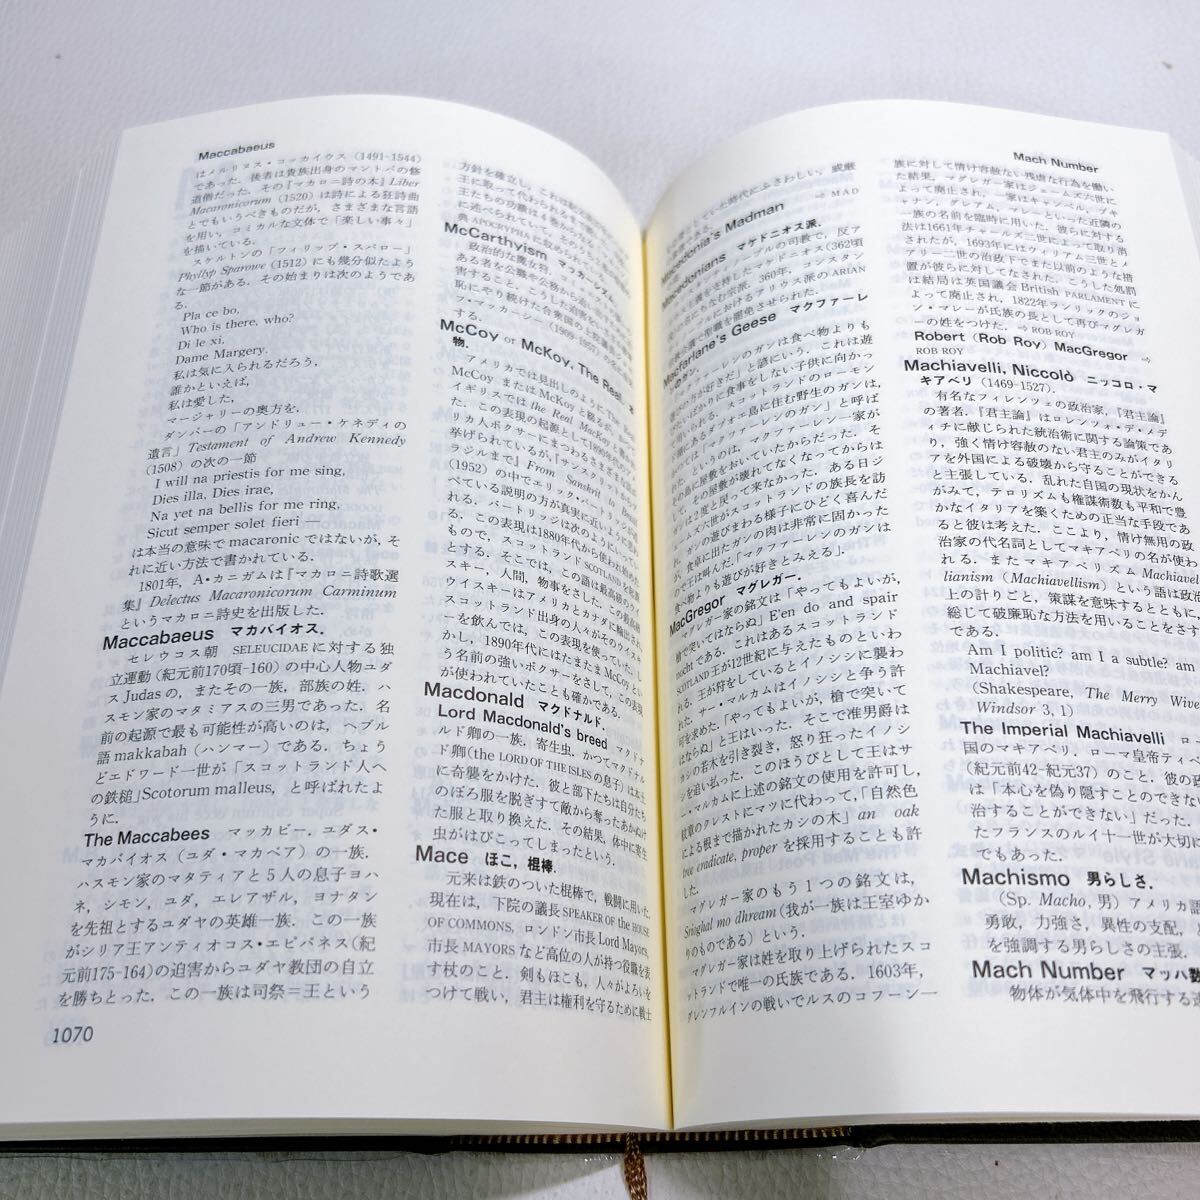 Maccabaeus
はメルリヌス・コッカイウス (1491-1544)
であった．後者は貴族出身のマントバの修
道僧だった．その『マカロニ詩の本』Liber
Macaronicorum (1520) は詩による狂詩曲
とでもいうべきものだが，さまざまな言語
を用い，コミカルな文体で「楽しい事々」
を描いている．
スケルトンの「フィリップ・スパロー」
Phyllyp Sparowe (1512) にも幾分似たよう
な一節がある．その始まりは次のようであ
る．
Pla ce bo,
Who is there, who?
Di le xi,
Dame Margery.
私は気に入られるだろう，
誰かといえば，
私は愛した，
マージャリーの奥方を．
ダンバーの「アンドリュー・ケネディの
遺言」Testament of Andrew Kennedy
(1508) の次の一節
I will na priestis for me sing,
Dies illa, Dies irae,
Na yet na bellis for me ring,
Sicut semper solet fieri —
は本当の意味で macaronic ではないが，そ
れに近い方法で書かれている．
1801年，A・カニガムは『マカロニ詩歌選
集』Delectus Macaronicorum Carminum
というマカロニ詩史を出版した．
Maccabaeus マカバイオス．
セレウコス朝 SELEUCIDAE に対する独
立運動(紀元前170頃-160)の中心人物ユダ
ス Judas の，またその一族，部族の姓．ハ
スモン家のマタミアスの三男であった．名
前の起源で最も可能性が高いのは，ヘブル
語 makkabah (ハンマー) である．ちょう
どエドワード一世が「スコットランド人へ
の鉄槌」Scotorum malleus，と呼ばれたよ
うに．
The Maccabees マッカビー．ユダス・
マカバイオス (ユダ・マカベア) の一族．
ハスモン家のマタティアと5人の息子ヨハ
ネ，シモン，ユダ，エレアザル，ヨナタン
を先祖とするユダヤの英雄一族．この一族
がシリア王アンティオコス・エピパネス(紀
元前175-164)の迫害からユダヤ教団の自立
を勝ちとった．この一族は司祭＝王という
1070
方針を確立し，これは
王に取って代わられるまで
王たちの功績は4巻から
に述べられていて，
典 APOCRYPHA に収め
McCarthyism マッカーシズム．
政治的な魔女狩り．
ある者を公職や公務から追
害すること．こうした迫害を
恥にやり続けた合衆国の上院議員
フ・マッカーシー (1909-1957) の
する．
McCoy or McKoy, The Real. 本
物．
アメリカでは見出しのように The Real
McCoy または McKoy と綴るが，
イギリスでは the Real MacKay
た．この表現の起源として1890年代のアメ
リカ人ボクサーにまつわるさまざまな
挙げられているが，『サンスクリットからブ
ラジルまで』From Sanskrit to Brazil
(1952) の中でエリック・パートリッジが述
べている説明の方が真実に近いように思わ
れる．パートリッジは次のようにいってい
る．この表現は1880年代から使われ始めた
もので，スコットランド SCOTLAND を起源
とする．そこでは，この語は最高級のウイ
スキー，人間，物事をさした．この最高級
ウイスキーはアメリカとカナダに輸出され
スコットランド出身の人々がそのウイスキ
ーを飲んでは，この表現を使っていた．し
かし，1890年代にはたまたま McCoy とい
う名前の強いボクサーをさして，この表現
が使われていたことも確かである．
Macdonald マクドナルド．
Lord Macdonald's breed マクドナ
ルド卿の一族．寄生虫．かつてマクドナル
ド卿(the LORD OF THE ISLES の息子)は本土
に奇襲をかけた．彼と部下たちは自分たち
のぼろ服を脱ぎすて敵から奪ったあかぬけ
た服と取り換えた．その結果，体中に寄生
虫がはびこってしまったという．
Mace ほこ，棍棒．
元来は鉄のついた棍棒で，戦闘に用いた．
現在は，下院の議長 SPEAKER OF THE HOUSE
OF COMMONS，ロンドン市長 Lord Mayors，
市長 MAYORS など高位の人が持つ役職を表
す杖のこと．剣もほこも，人々がよろいを
つけて戦い，君主は権利を守るために戦士
えていた時代にふさわしい，威厳
⇨ MAD
Macedonia's Madman
Macedonians マケドニオス派．
ノープルの司教で，反ア
義を支持したマケドニオス(362頃
にちなむ宗派．360年，コンスタン
ープルにおけるアリウス派の ARIAN
派へ第一聖職を罷免させられた．
Macfarlane's Geese マクファーレ
ンのガン．
「マクファーレンのガンは食べ物よりも
遊びが好きだ」と諺にいう．これは遊
ばかりに食事をしない子供に向かっ
用いられる．スコットランドのローモン
にあるタブオエ島に住む野生のガンは，
しばしば「マクファーレンのガン」と呼ば
れた．というのは，マクファーレン一家が
の島に屋敷をおいていたからだった．そ
て，その屋敷が壊れてなくなってから
ガンは2度と戻って来なかった．ある日ジ
ームズ六世がスコットランドの族長を訪
ガンの遊びまわる様子にひどく喜んだ
が，食卓に出たガンの肉は非常に固かった
王は叫んだ．「マクファーレンのガンは
食べ物よりも遊びが好きとみえる」．
MacGregor マグレガー．
マグレガー家の銘文は「やってもよいが，
槍で突いてはならぬ」E'en do and spair
nocht である．これはあるスコットランド
SCOTLAND 王が12世紀に与えたものといわ
れる．王が狩をしているとイノシシに襲わ
れた．サー・マルカムはイノシシと争う許
可を求めた．「やってもよいが，槍で突いて
はならぬ」と王はいった．そこで准男爵は
カシの若木を引き裂き，怒り狂ったイノシ
シを追い払った．このほうびとして王はサ
ー・マルカムに上述の銘文の使用を許可し，
紋章のクレストにマツに代わって，「自然色
による根まで描かれたカシの木」an oak
tree eradicate, proper を採用することも許
した．
マグレガー家のもう1つの銘文は，
Srioghal mo dhream (我が一族は王室ゆか
りのものである) という．
マグレガー家は姓を取り上げられたスコ
ットランドで唯一の氏族である．1603年，
グレンフルインの戦いでルスのコフーン—
Mach Number
族に対して情け容赦ない残虐な行為を働い
た結果，マグレガー家はジェームズ六世に
よって廃止され，家はキャンベル，ブキ
ャナン，グラアム，マレーといった近隣の
一族の名前を臨時に用いた．彼らに対する
法は1661年チャールズ二世によって取り消
されたが，1693年にはウィリアム三世とメ
アリー二世の治政下でまた以前のような措
置が彼らに対してなされた．こうした処罰
は結局は英国議会 British PARLIAMENT に
よって廃止され，1822年ランリックのジョ
ン・マレーが氏族の長として再びマグレガ
ーの姓をつけた．⇨ ROB ROY
Robert (Rob Roy) MacGregor ⇨
ROB ROY
Machiavelli, Niccolò ニッコロ・マ
キアベリ (1469-1527)．
有名なフィレンツェの政治家，『君主論』
の著者．『君主論』はロレンツォ・デ・メデ
ィチに献じられた統治術に関する論策であ
り，強く情け容赦のない君主のみがイタリ
アを外国による破壊から守ることができる
と主張している．乱れた自国の現状をかん
がみて，テロリズムも権謀術数も平和で豊
かなイタリアを築くための正当な手段であ
ると彼は考えた．ここより，情け無用の政
治家の代名詞としてマキアベリの名が使わ
れる．またマキアベリズム Machiavel-
lianism (Machiavellism) という語は政治
上の計りごと，策謀を意味するとともに，
総じて破廉恥な方法を用いることをさす
である．
Am I politic? am I a subtle? am
Machiavel?
(Shakespeare, The Merry Wives
Windsor 3, 1)
The Imperial Machiavelli ロー
国のマキアベリ．ローマ皇帝ティベ
(紀元前42-紀元37)のこと．彼の政
は「本心を偽り隠すことのできない
治することができない」だった．
たフランスのルイ十一世が大切に
でもあった．
Machismo 男らしさ．
(Sp. Macho, 男) アメリカ語
勇敢，力強さ，異性の支配，と
を強調する男らしさの主張．
Mach Number マッハ数
物体が気体中を飛行する速